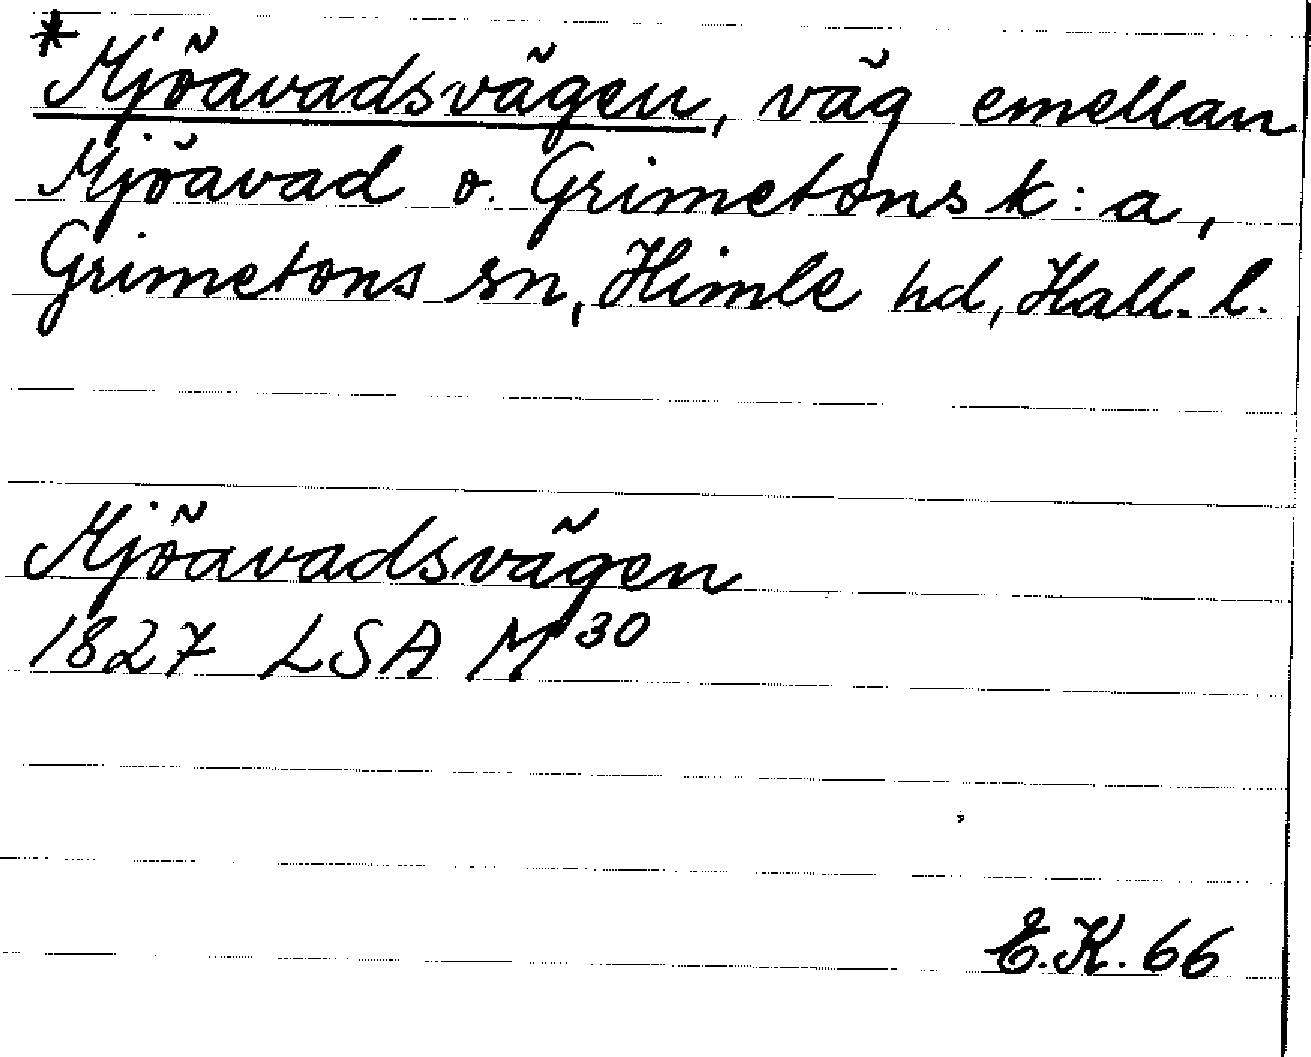 *Mjöavadsvägen, väg emellan
Mjöavad o. Grimetons k:a,
Grimetons sn, Himle hd, Hall. l.
Mjöavadsvägen
1827 LSA M³⁰
E.K. 66